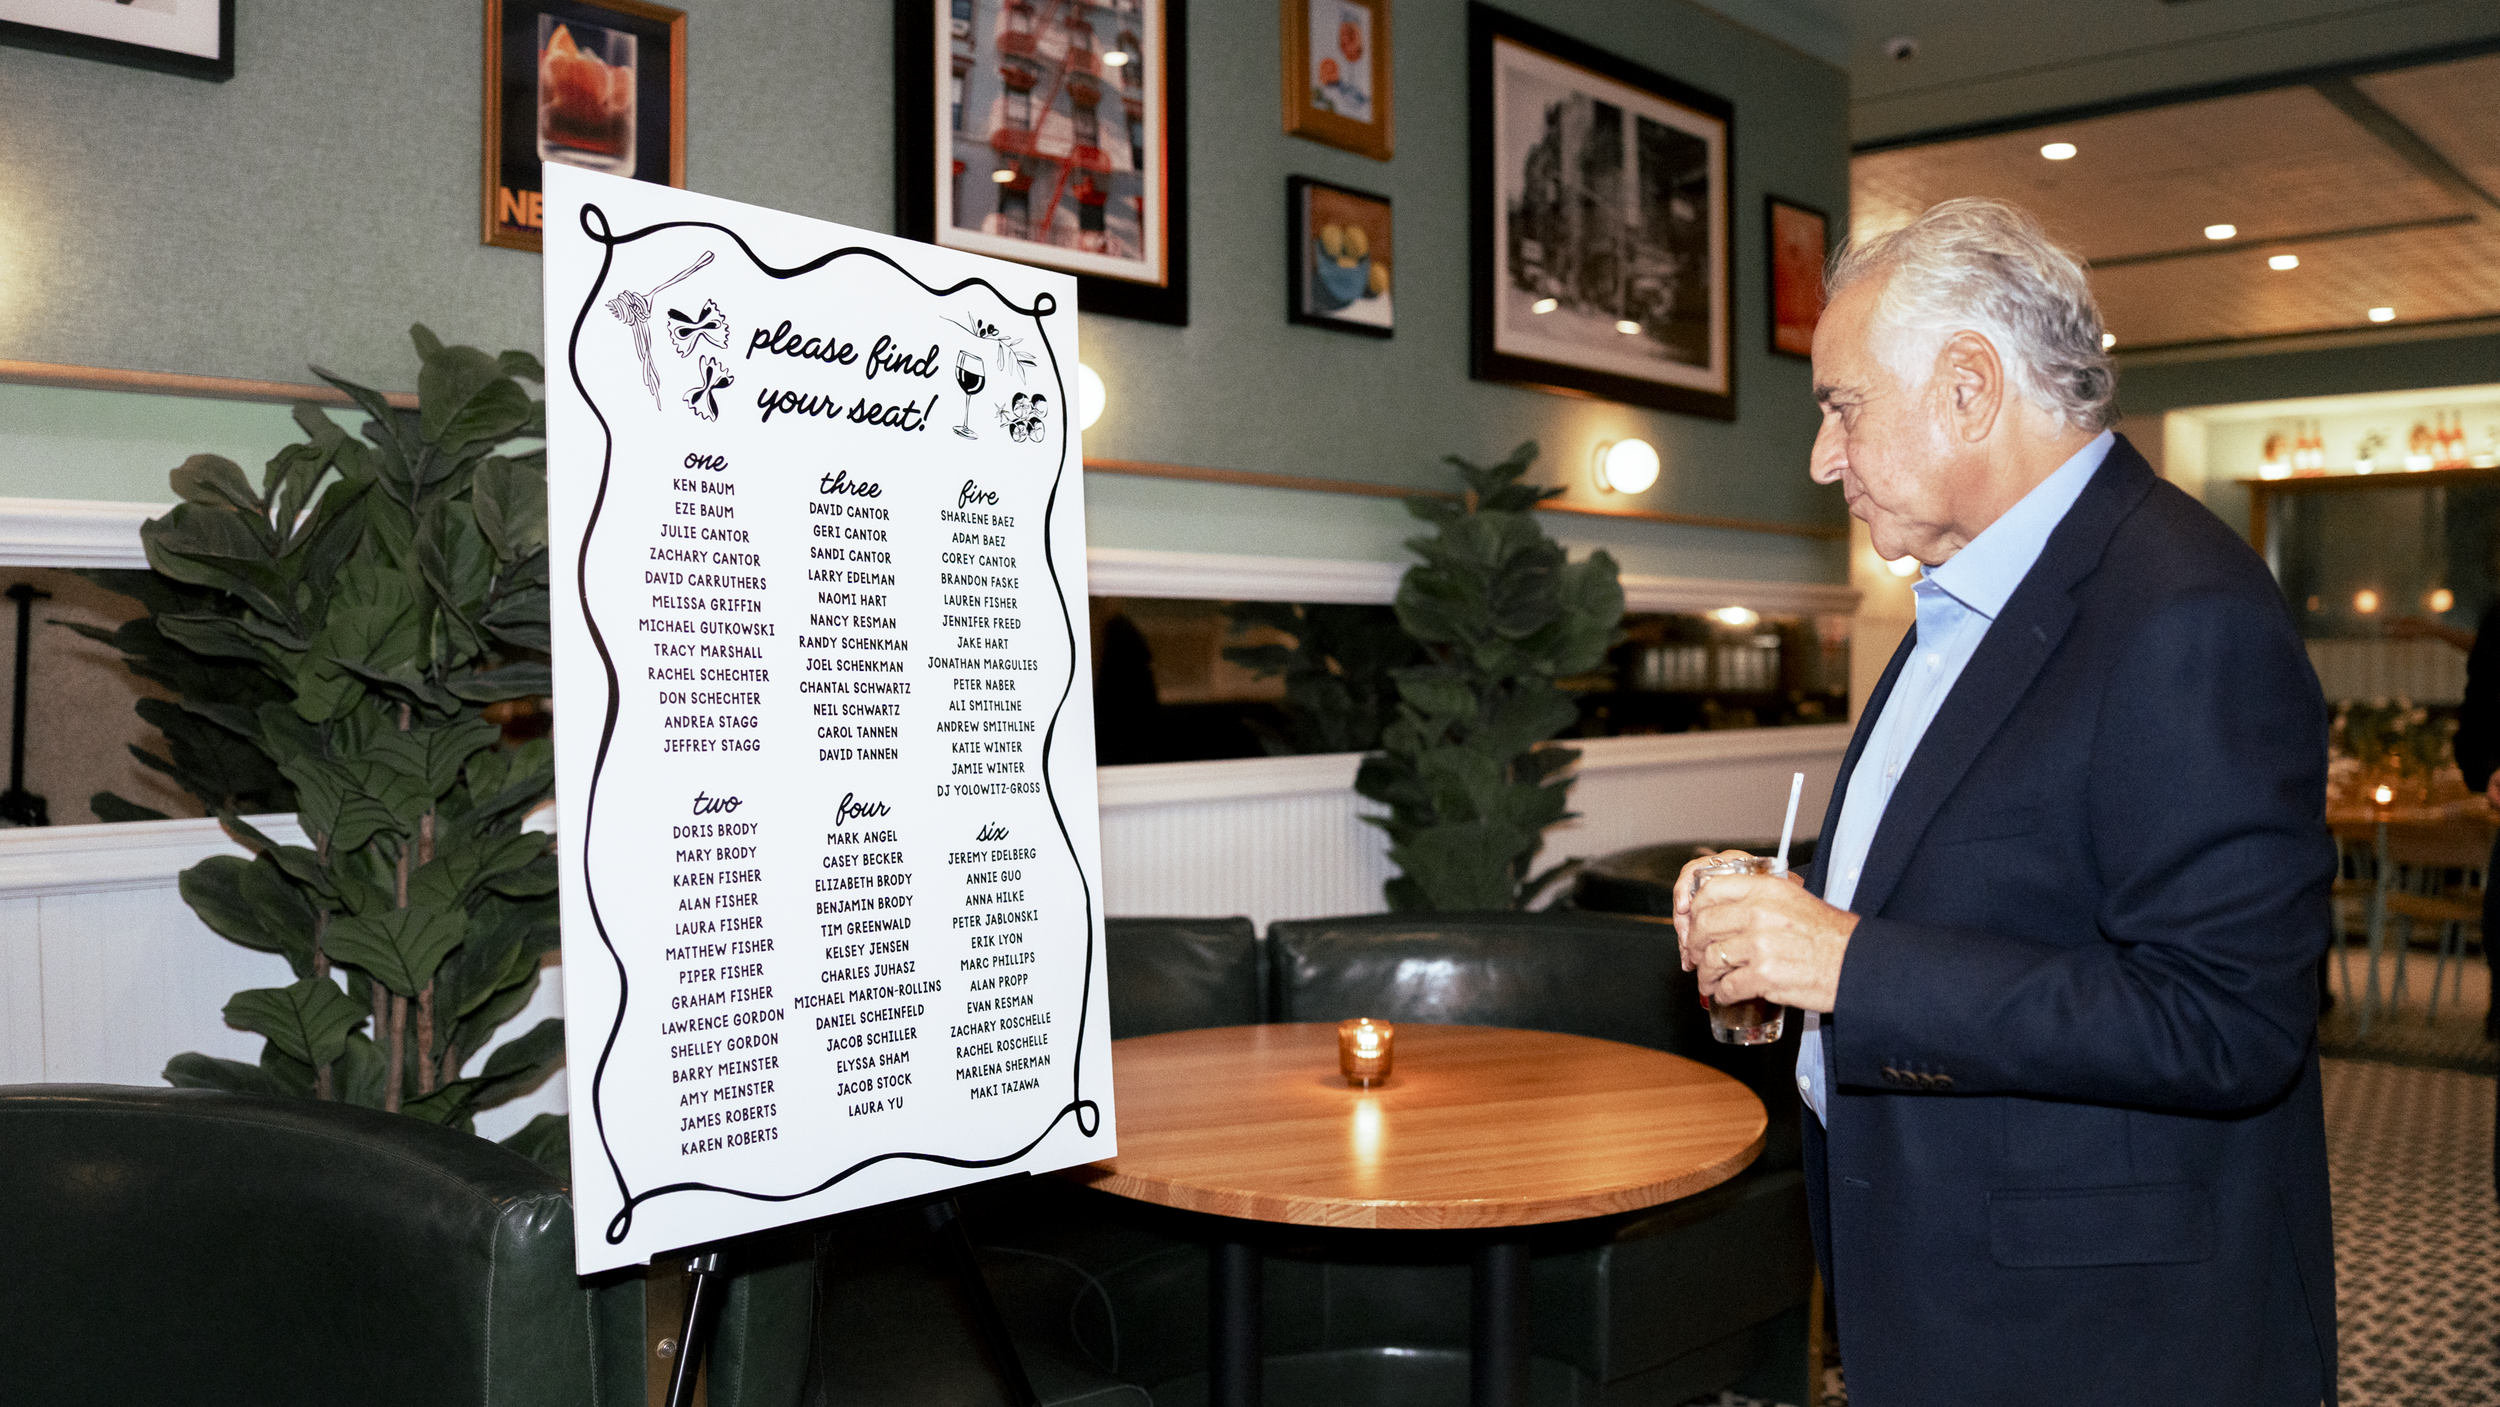 NE
please find
your seat!
one
KEN BAUM
EZE BAUM
JULIE CANTOR
ZACHARY CANTOR
DAVID CARRUTHERS
MELISSA GRIFFIN
MICHAEL GUTKOWSKI
TRACY MARSHALL
RACHEL SCHECHTER
DON SCHECHTER
ANDREA STAGG
JEFFREY STAGG
two
DORIS BRODY
MARY BRODY
KAREN FISHER
ALAN FISHER
LAURA FISHER
MATTHEW FISHER
PIPER FISHER
GRAHAM FISHER
LAWRENCE GORDON
SHELLEY GORDON
BARRY MEINSTER
AMY MEINSTER
JAMES ROBERTS
KAREN ROBERTS
three
DAVID CANTOR
GERI CANTOR
SANDI CANTOR
LARRY EDELMAN
NAOMI HART
NANCY RESMAN
RANDY SCHENKMAN
JOEL SCHENKMAN
CHANTAL SCHWARTZ
NEIL SCHWARTZ
CAROL TANNEN
DAVID TANNEN
four
MARK ANGEL
CASEY BECKER
ELIZABETH BRODY
BENJAMIN BRODY
TIM GREENWALD
KELSEY JENSEN
CHARLES JUHASZ
MICHAEL MARTON-ROLLINS
DANIEL SCHEINFELD
JACOB SCHILLER
ELYSSA SHAM
JACOB STOCK
LAURA YU
five
SHARLENE BAEZ
ADAM BAEZ
COREY CANTOR
BRANDON FASKE
LAUREN FISHER
JENNIFER FREED
JAKE HART
JONATHAN MARGULIES
PETER NABER
ALI SMITHLINE
ANDREW SMITHLINE
KATIE WINTER
JAMIE WINTER
DJ YOLOWITZ-GROSS
six
JEREMY EDELBERG
ANNIE GUO
ANNA HILKE
PETER JABLONSKI
ERIK LYON
MARC PHILLIPS
ALAN PROPP
EVAN RESMAN
ZACHARY ROSCHELLE
RACHEL ROSCHELLE
MARLENA SHERMAN
MAKI TAZAWA